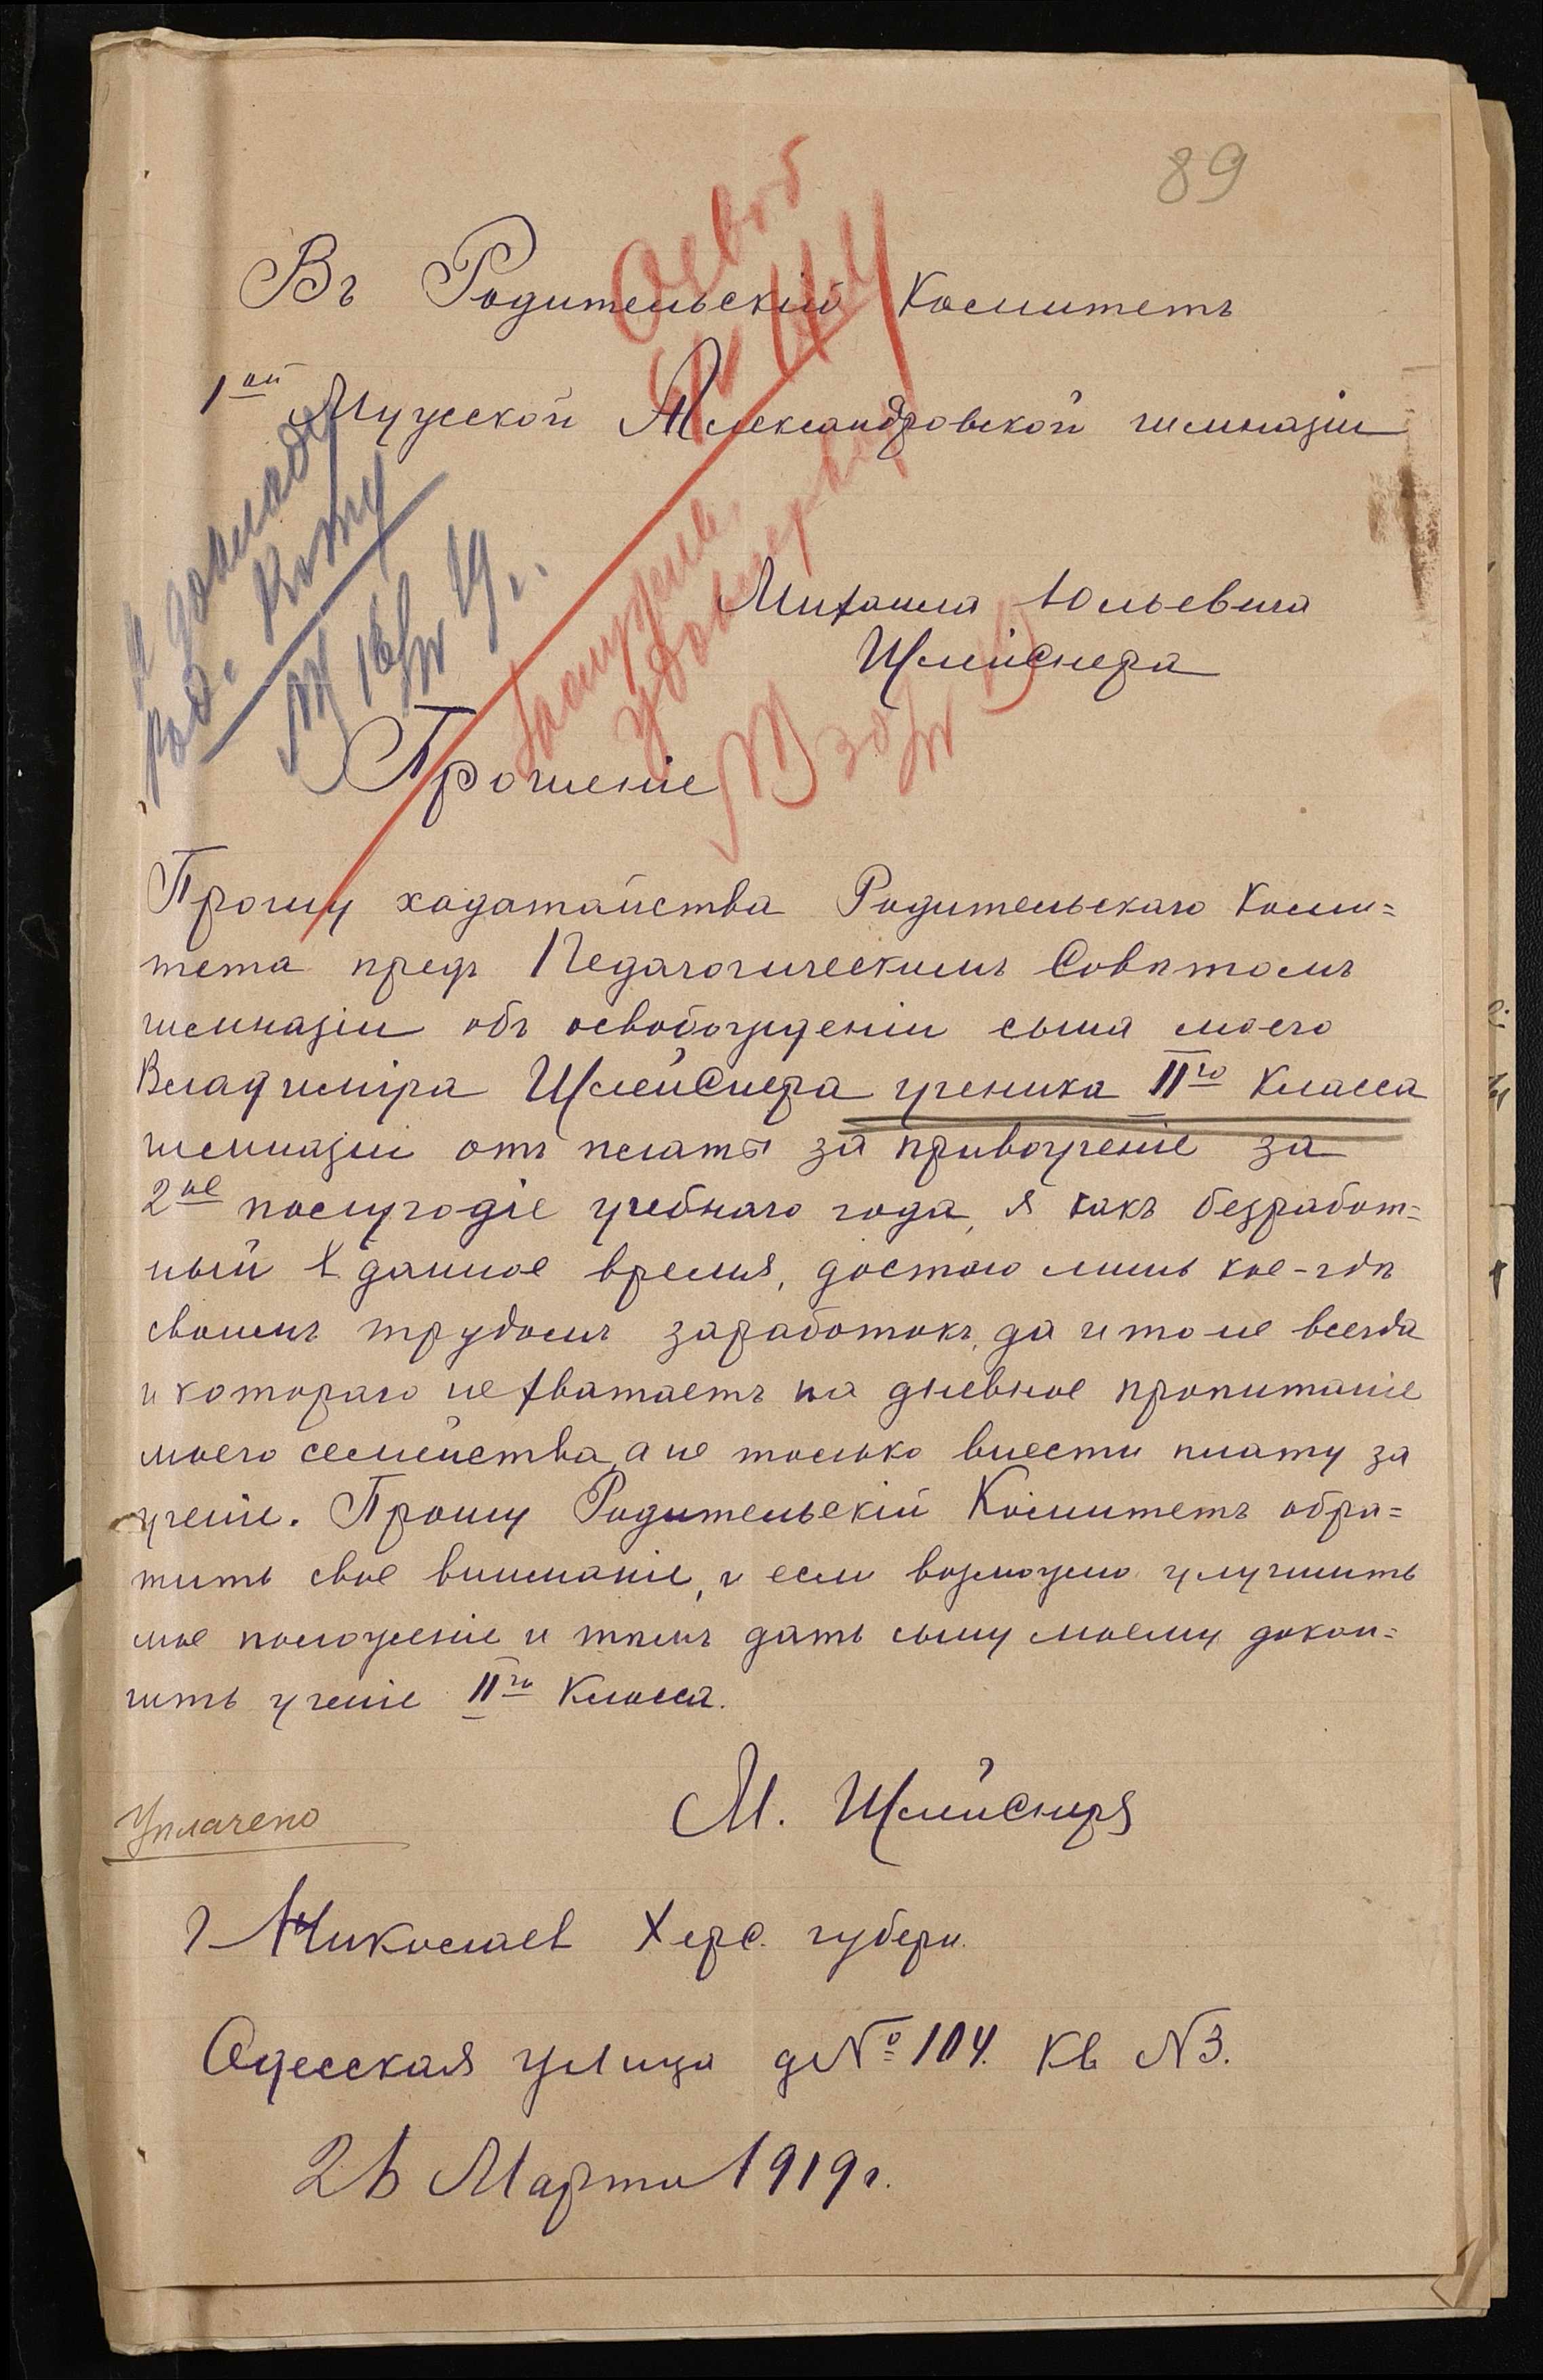 89
Въ Родительскій Комитетъ
1ой Мужской Александровской гимназіи
Михаила Юльевича
Шлейснера
Прошеніе
Прошу ходатайства Родительскаго Коми=
тета предъ Педагогическимъ Совѣтомъ
гимназіи объ освобожденіи сына моего
Владиміра Шлейснера ученика IIго Класса
гимназіи отъ платы за правоученіе за
2ое полугодіе учебнаго года, я какъ безработ=
ный в данное время, достаю лишь кое-гдѣ
своимъ трудомъ заработокъ, да и то не всегда
и котораго не хватаетъ на дневное пропитаніе
моего семейства, а не только внести плату за
ученіе. Прошу Родительскій Комитетъ обра=
тить свое вниманіе, и если возможно улучшить
мое положеніе и тѣмъ дать сыну моему докон=
чить ученіе IIго Класса.
М. Шлейснеръ
Уплачено
г Николаев Херс. губерн.
Одесская улица д№ 104. Кв N3.
26 Марта 1919г.
к докладу
род. к-ту
16/IV 19 г.
Освоб
Заслужив.
удовлетвор
30/IV 19